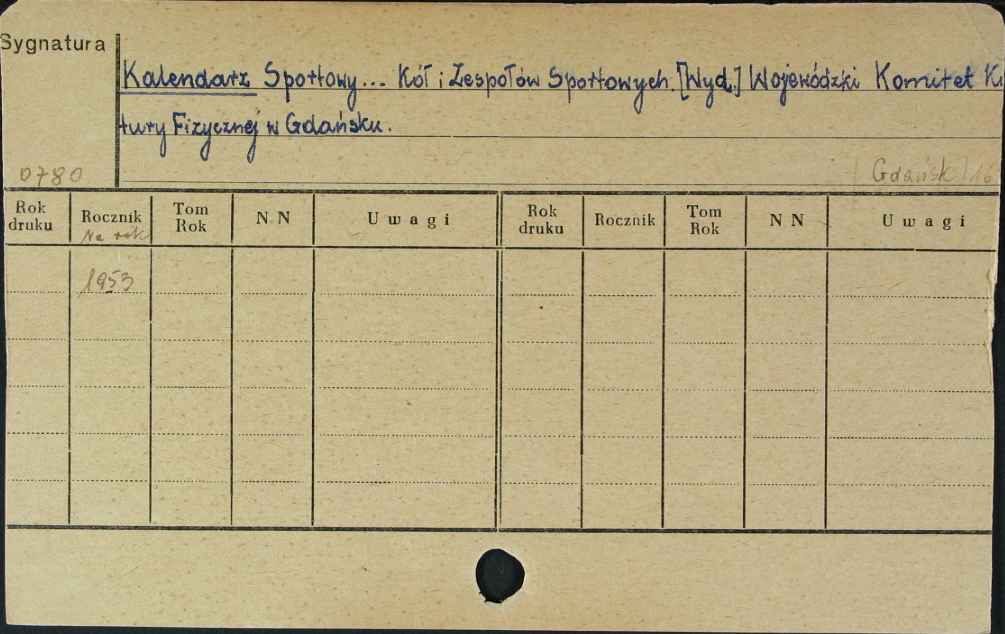 Sygnatura
Kalendarz Sportowy... Kół i Zespołów Sportowych. [Wyd.] Wojewódzki Komitet Ku
tury Fizycznej w Gdańsku.
0780
Gdańsk
Rok druku Rocznik Tom Rok N N Uwagi Rok druku Rocznik Tom Rok N N Uwagi
Na rok
1953